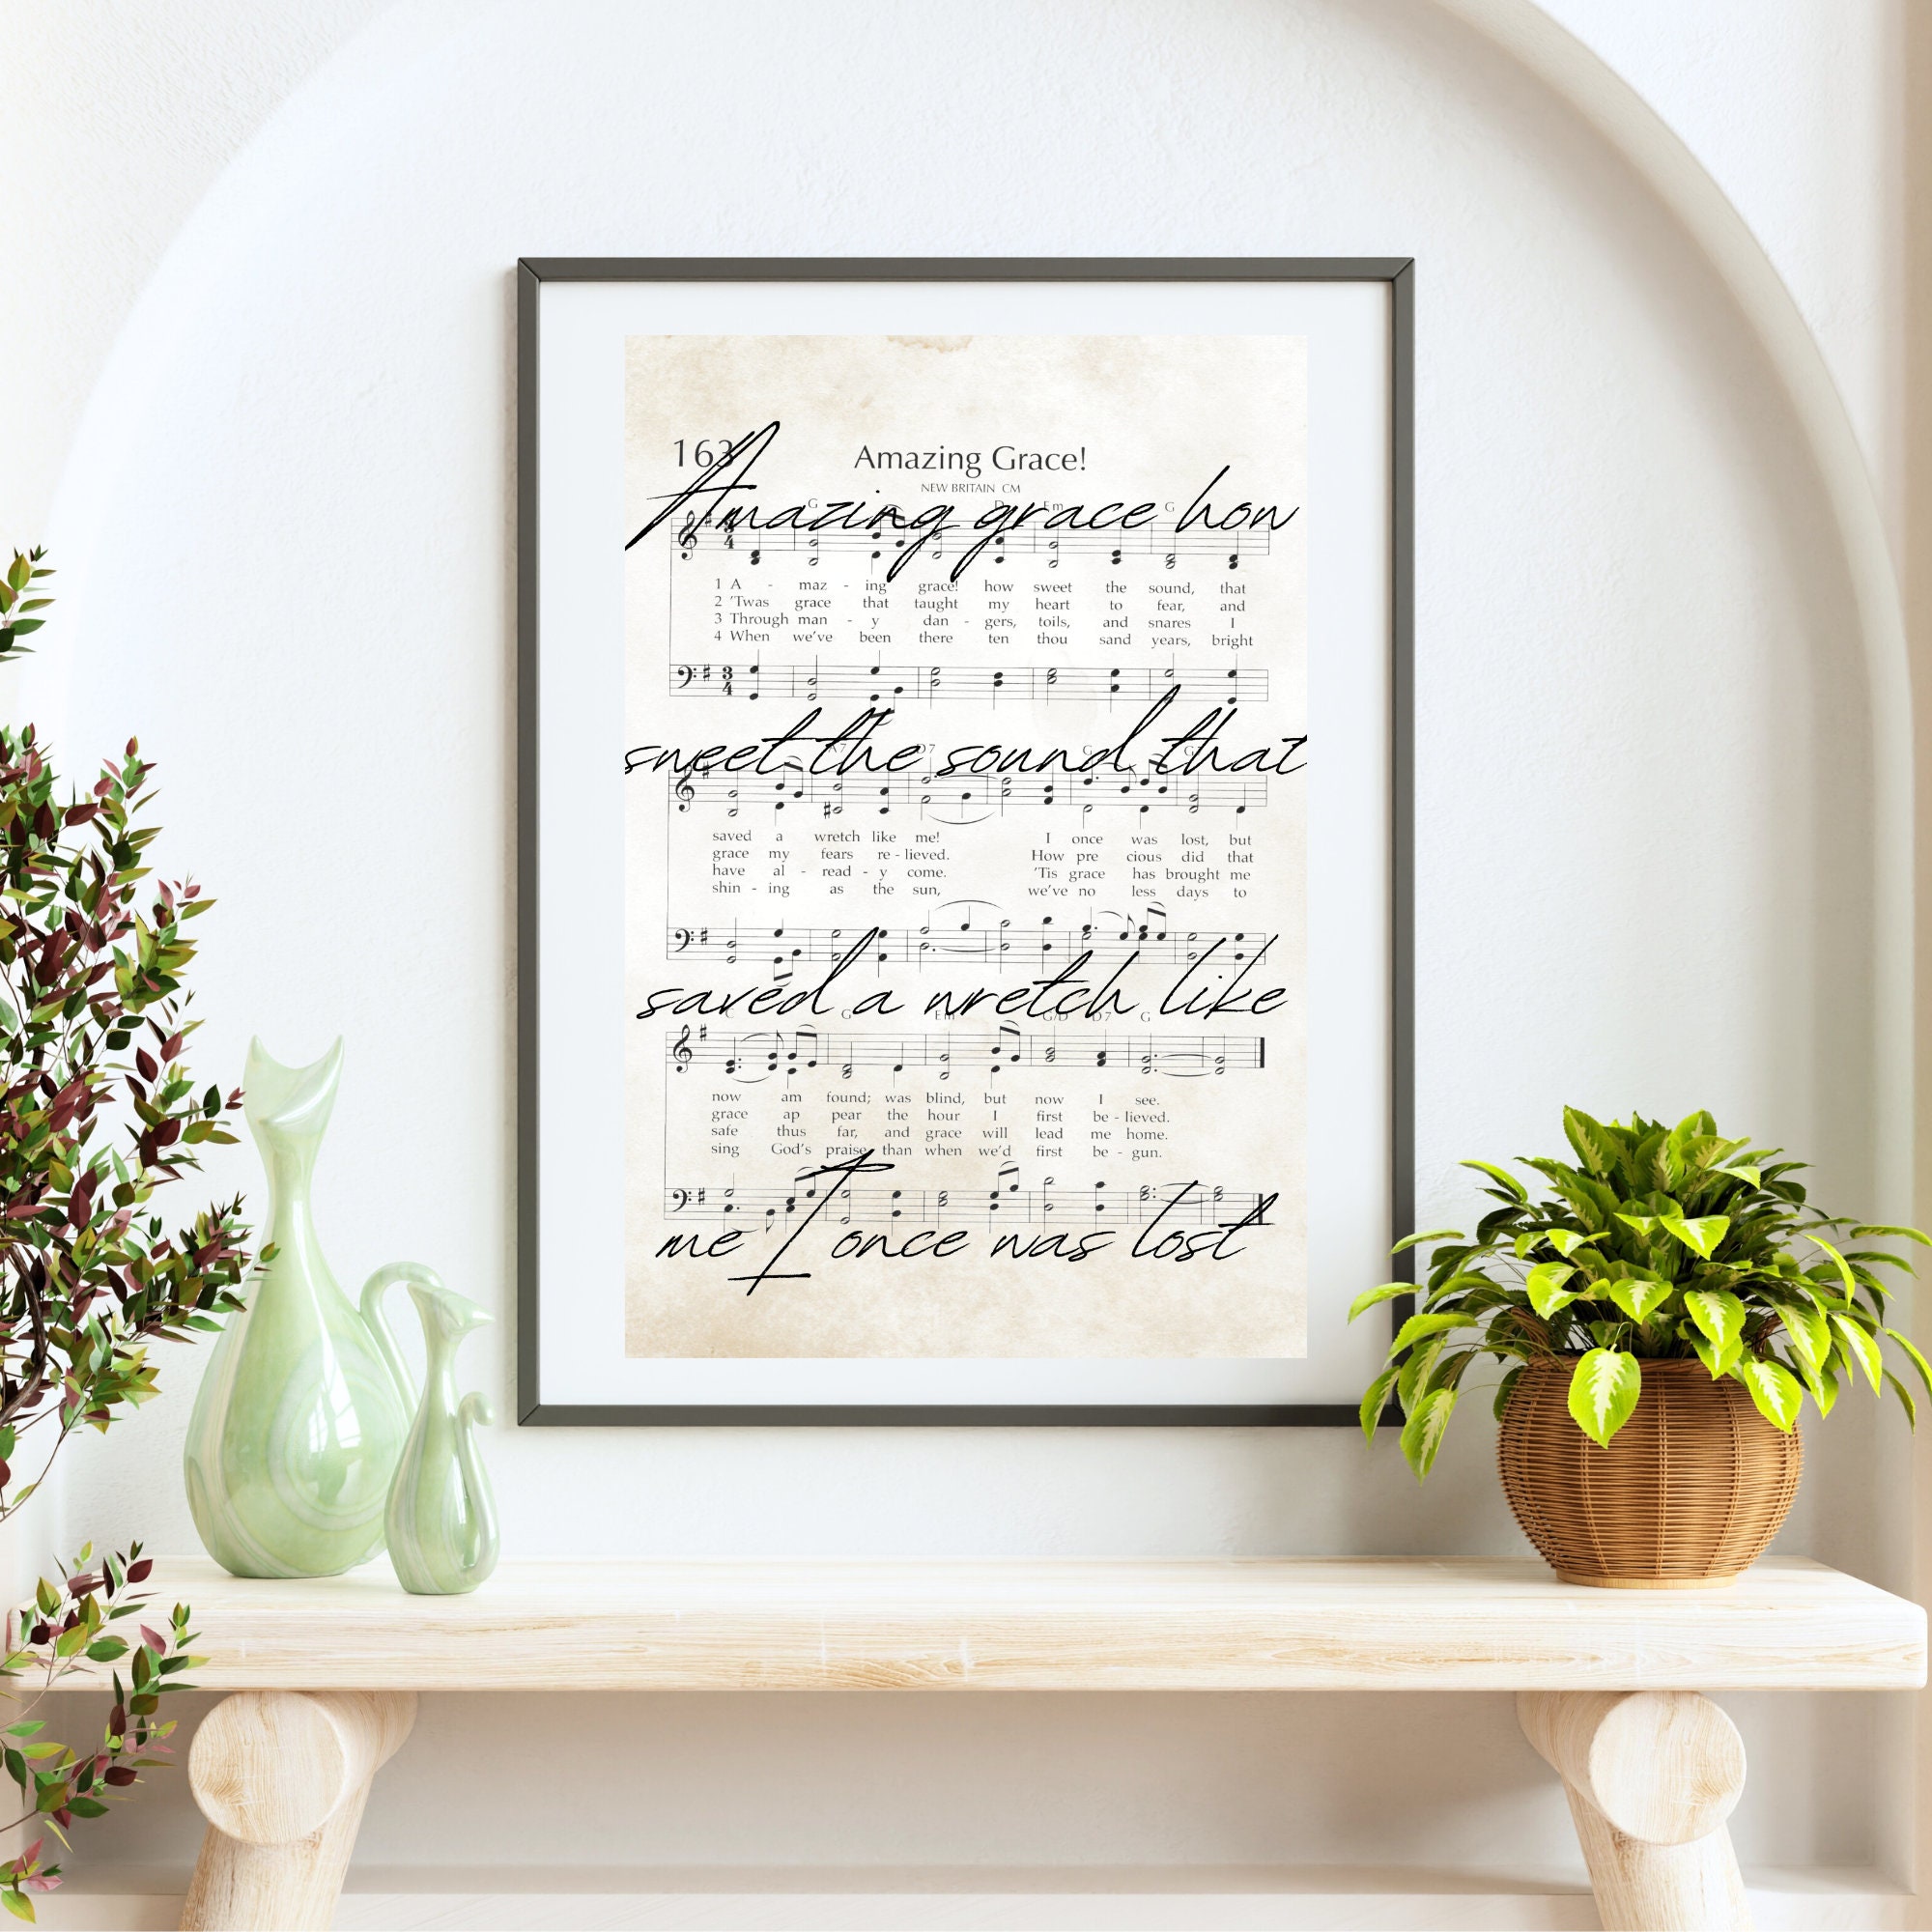 163 Amazing Grace!
NEW BRITAIN CM
Amazing grace how
G D Em G
3 4
1 A - maz - ing grace! how sweet the sound, that
2 'Twas grace that taught my heart to fear, and
3 Through man - y dan - gers, toils, and snares I
4 When we've been there ten thou sand years, bright
3 4
sweet the sound that
A7 D7 G
saved a wretch like me! I once was lost, but
grace my fears re - lieved. How pre cious did that
have al - read - y come. 'Tis grace has brought me
shin - ing as the sun, we've no less days to
saved a wretch like
G Em G/D D7 G
now am found; was blind, but now I see.
grace ap pear the hour I first be - lieved.
safe thus far, and grace will lead me home.
sing God's praise than when we'd first be - gun.
me I once was lost